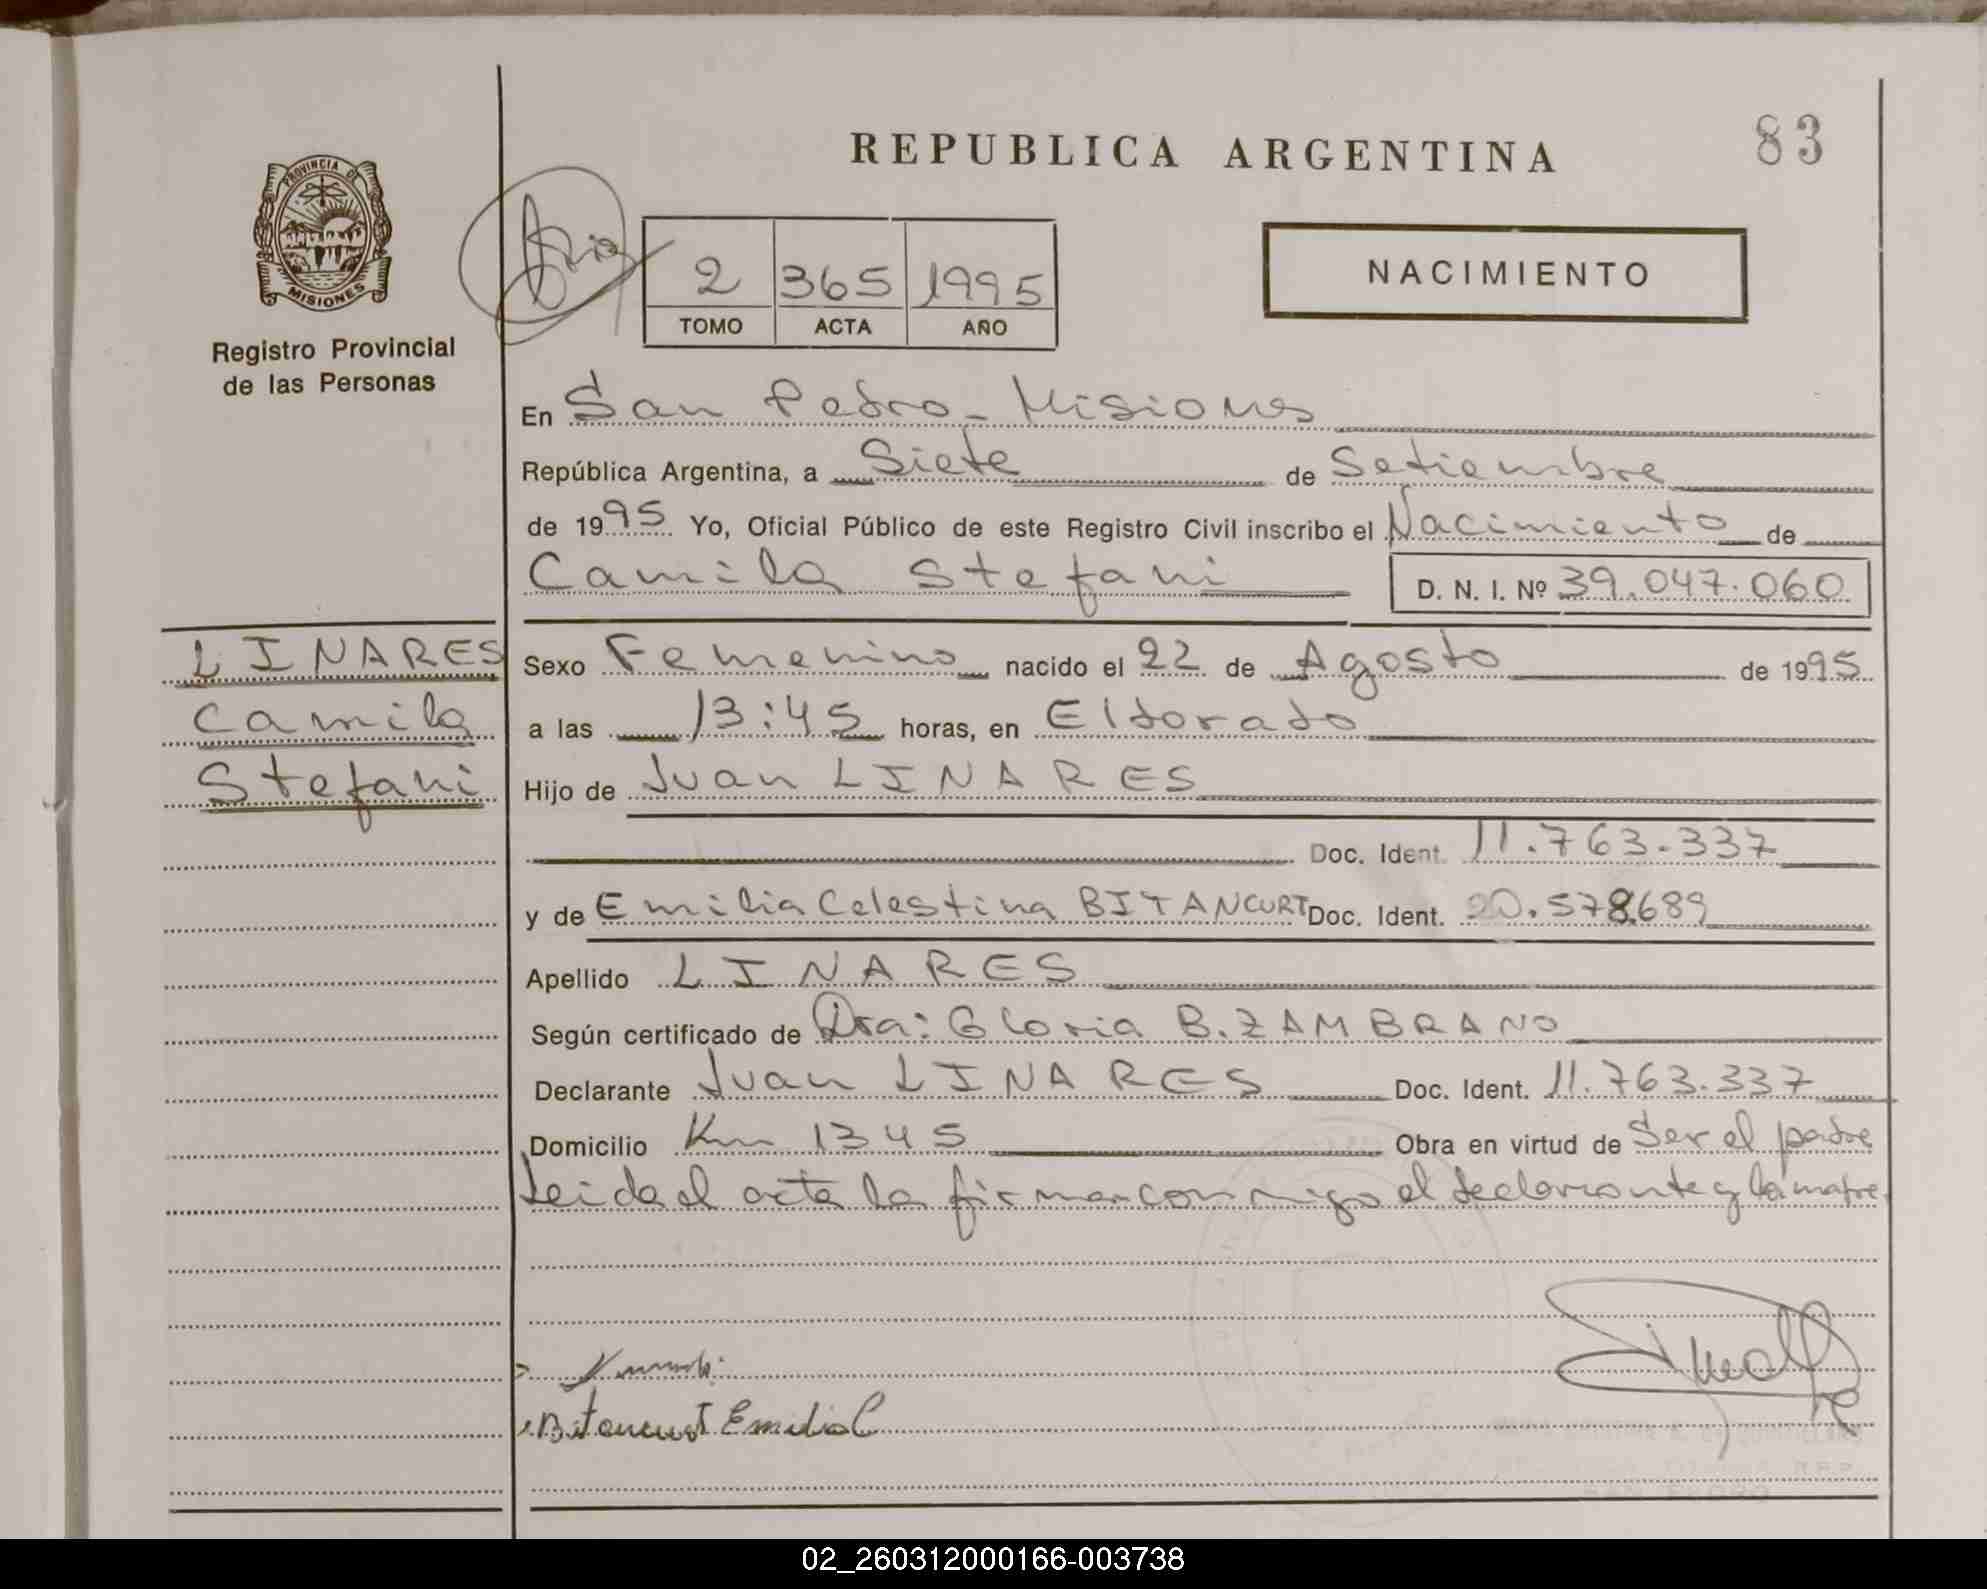 83
REPUBLICA ARGENTINA
PROVINCIA DE
MISIONES
Registro Provincial
de las Personas
2 365 1995
TOMO ACTA AÑO
NACIMIENTO
En San Pedro - Misiones
República Argentina, a Siete de Setiembre
de 1995 Yo, Oficial Público de este Registro Civil inscribo el Nacimiento de
Camila Stefani D. N. I. Nº 39.047.060
LINARES
Camila
Stefani
Sexo Femenino nacido el 22 de Agosto de 1995
a las 13:45 horas, en Eldorado
Hijo de Juan LINARES
Doc. Ident. 11.763.337
y de Emilia Celestina BITANCURT Doc. Ident. 20.578.689
Apellido LINARES
Según certificado de Dra: Gloria B. ZAMBRANO
Declarante Juan LINARES Doc. Ident. 11.763.337
Domicilio Km 1345 Obra en virtud de Ser el padre
Leida el acta la firman conmigo el declarante y la madre.
Bitancurt Emilia C
02_260312000166-003738